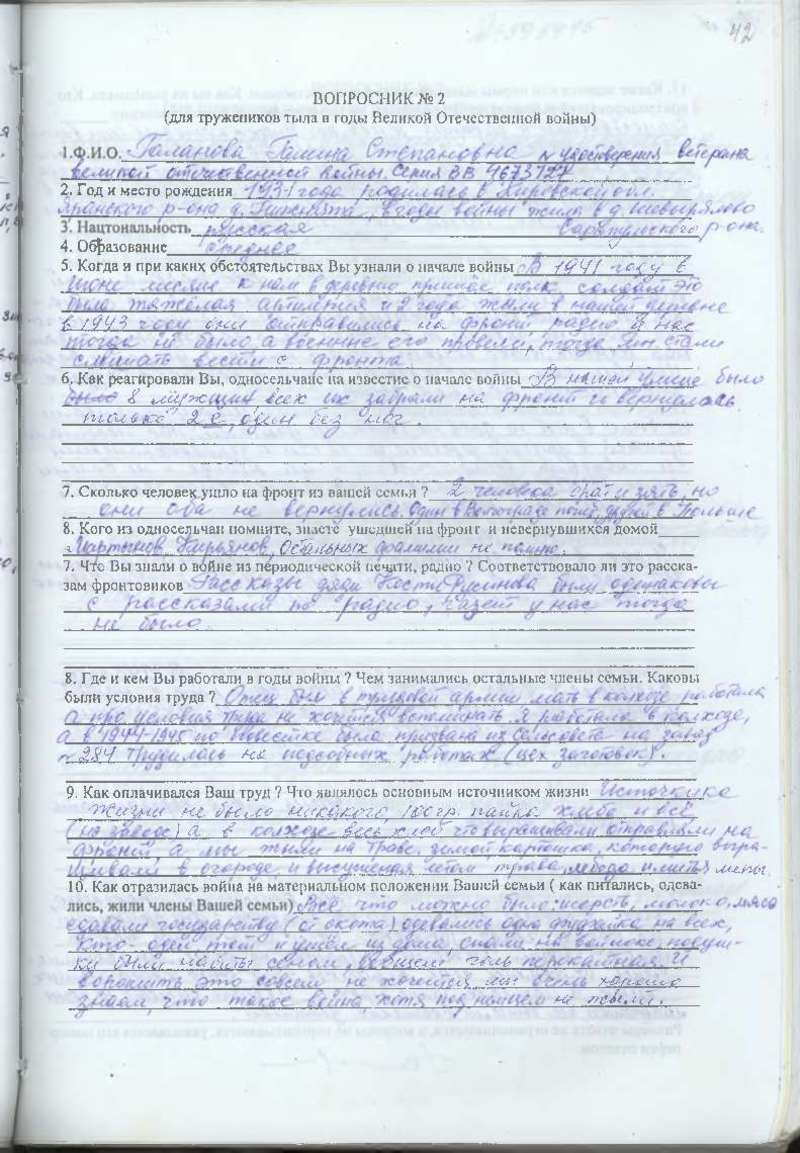 42
ВОПРОСНИК № 2
(для тружеников тыла в годы Великой Отечественной войны)
1.Ф.И.О. Галанова Галина Степановна № удостоверения ветерана
великой отечественной войны. Серия ВВ 4673727
2. Год и место рождения 1931 года родилась в Кировской обл.
Яранского р-она д. , в годы войны жила в д. Шевырялово
3. Нацтональность русская Сарапульского р-она.
4. Образование среднее
5. Когда и при каких обстоятельствах Вы узнали о начале войны В 1941 году в
июне месяце к нам в деревню пришёл полк солдат это
была тяжёлая артилерия и 2 года жили в нашей деревне
в 1943 году они отправились на фронт, радио у нас
тогда не было, а военные его провели, тогда мы стали
слушать вести с фронта.
6. Как реагировали Вы, односельчане на известие о начале войны В нашей улице было
было 8 мужчин всех их забрали на фронт и вернулось
только 2е, один без ног.
7. Сколько человек ушло на фронт из вашей семьи ? 2 человека брат и зять, но
они оба не вернулись. Один в Волгограде погиб, другой в Польше
8. Кого из односельчан помните, знаете ушедшей на фронт и невернувшихся домой
Мартынов, Кирьянов, Остальных фамилии не помню.
7. Что Вы знали о войне из периодической печати, радио ? Соответствовало ли это расска-
зам фронтовиков Рассказы дяди Кости Русинова были одинаковы
с рассказами по радио, газет у нас тогда
не было.
8. Где и кем Вы работали в годы войны ? Чем занимались остальные члены семьи. Каковы
были условия труда ? Отец был в трудовой армии мать в колхозе работала
а про условия труда не хочется вспоминать. Я работала в колхозе,
а в 1944-1945 по повестке была призвана из сельсовета на завод
№ 284 трудилась на подсобных работах (цех заготовок).
9. Как оплачивался Ваш труд ? Что являлось основным источником жизни Источника
жизни не было никакого, 100гр. пайка хлеба и всё
(на заводе) а в колхозе весь хлеб что выращивали отправляли на
фронт, а мы жили на траве, зимой картошка, которую выра-
щивали в огороде и высушеная летом трава, лебеда и листья липы.
10. Как отразилась война на материальном положении Вашей семьи ( как питались, одева-
лись, жили члены Вашей семьи) Всё что можно было: шерсть, молоко, мясо
сдавали государству (от скота) одевались одна фуфайка на всех,
кто- одел тот и ушёл из дома, спали на войлоке, подуш-
ки были набиты сеном, вобщем голь перекатная. И
ворошить это совсем не хочется мы очень хорошо
знаем, что такое война хотя под немцем не жили.